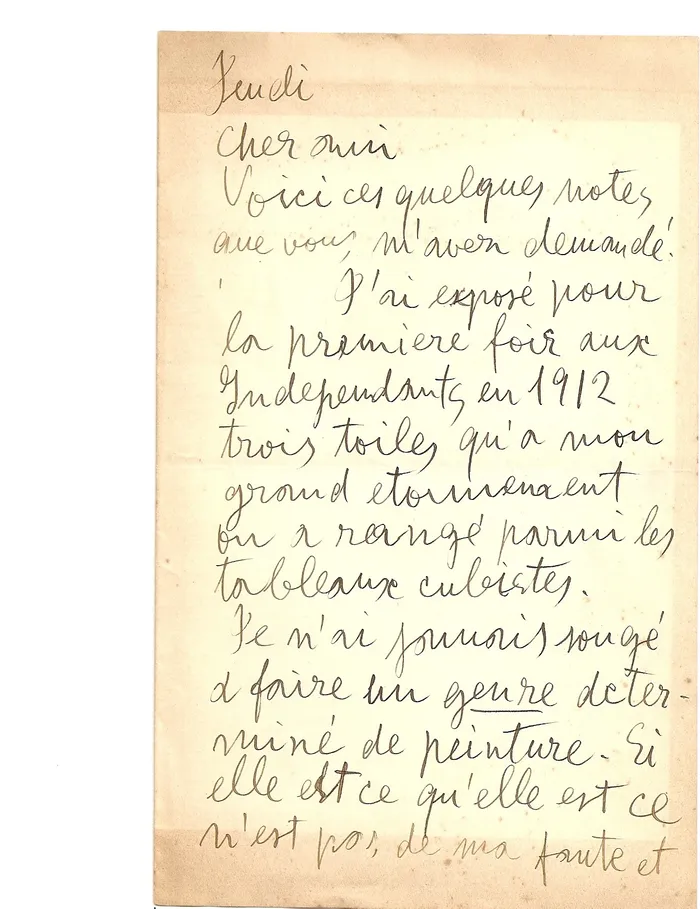 Jeudi
Cher ami
Voici ces quelques notes
que vous m'avez demandé.
J'ai exposé pour
la premiere fois aux
Independants en 1912
trois toiles qu'a mon
grand etonnement
on a rangé parmi les
tableaux cubistes.
Je n'ai jamais songé
a faire un genre deter-
miné de peinture. Si
elle est ce qu'elle est ce
n'est pas de ma faute et